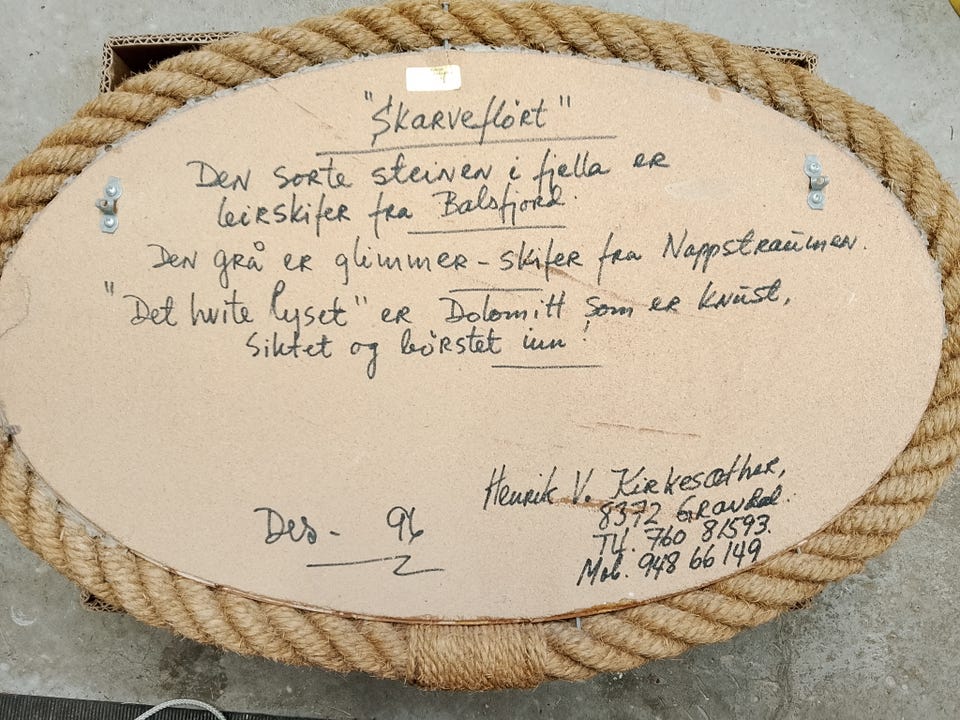 "Skarveflørt"
Den sorte steinen i fjella er
leirskifer fra Balsfjord.
Den grå er glimmer-skifer fra Nappstraumen.
"Det hvite lyset" er Dolomitt som er knust,
siktet og børstet inn!
Henrik V. Kirkesæther,
8372 Gravdal.
Tlf. 760 81593.
Mob. 948 66 149
Des - 96